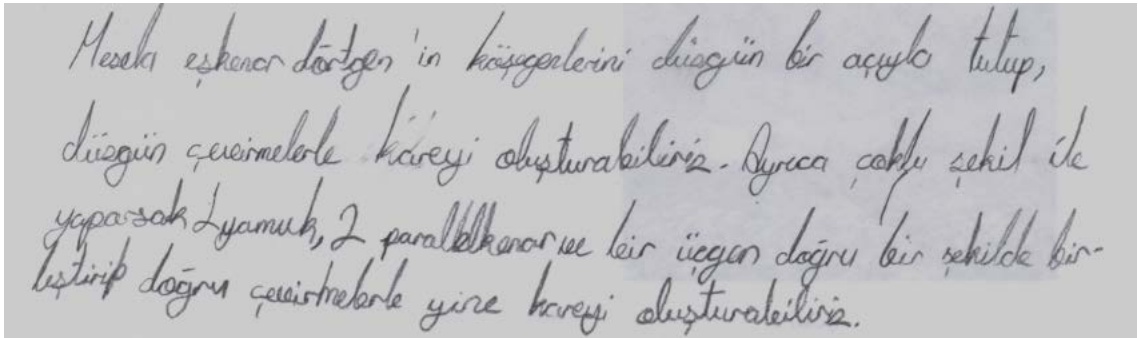 Mesela eşkenar dörtgen'in köşegenlerini düzgün bir açıyla tutup,
düzgün çevirmelerle kareyi oluşturabiliriz. Ayrıca çoklu şekil ile
yaparsak 2 yamuk, 2 paralelkenar ve bir üçgen doğru bir şekilde bir-
leştirip doğru çevirmelerle yine kareyi oluşturabiliriz.